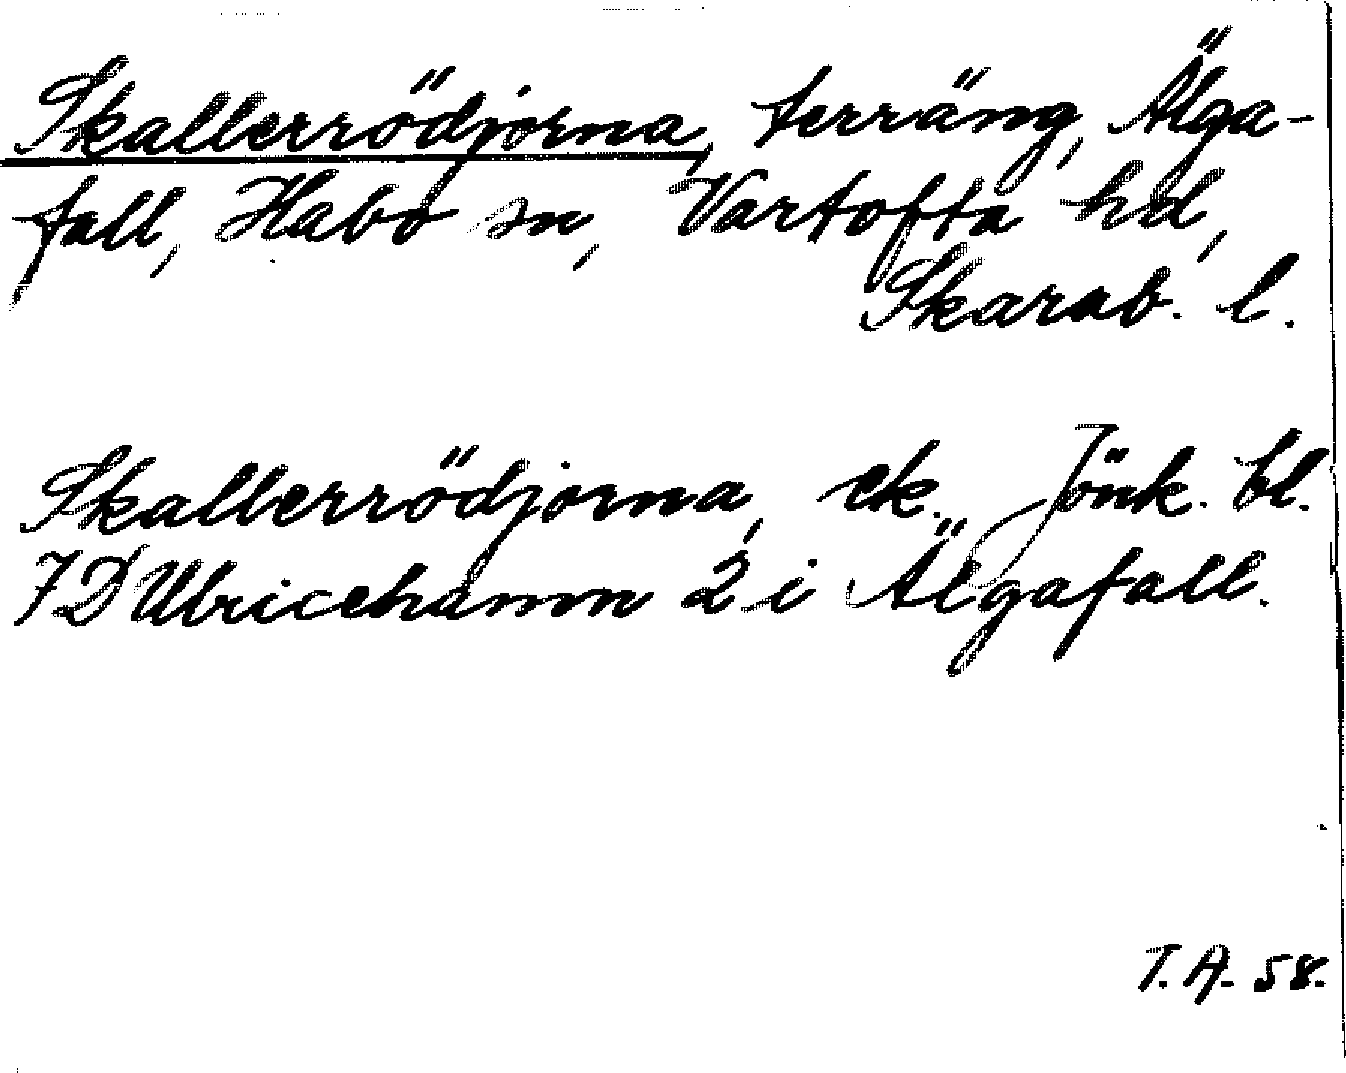 Skallerrödjorna, terräng, Älga-
fall, Habo sn, Vartofta hd,
Skarab. l.
Skallerrödjorna, ek. Jönk. bl.
7D Ulricehamn 2 i Älgafall.
T. A. 58.